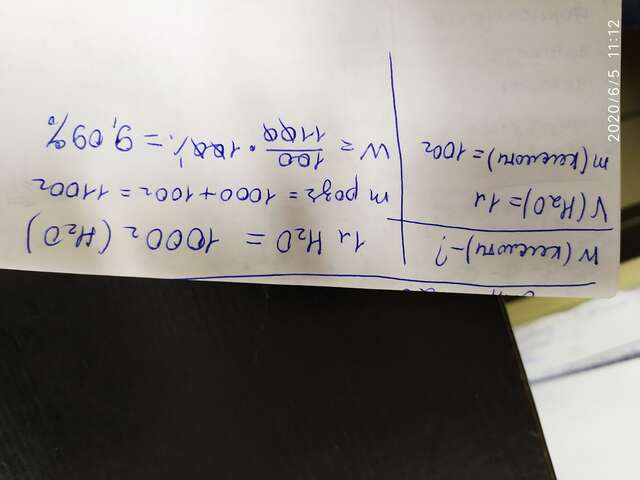 W(кислоти)-?
V(H₂O)=1л
m(кислоти)=100г
1л H₂O = 1000г (H₂O)
m = 1000+100г = 1100г
W = 100/1100 · 100% = 9,09%
2020/6/5 11:12